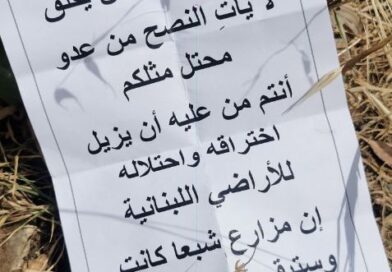 لا يأتِ النصح من عدو
محتل مثلكم
أنتم من عليه أن يزيل
اختراقه واحتلاله
للأراضي اللبنانية
إن مزارع شبعا كانت